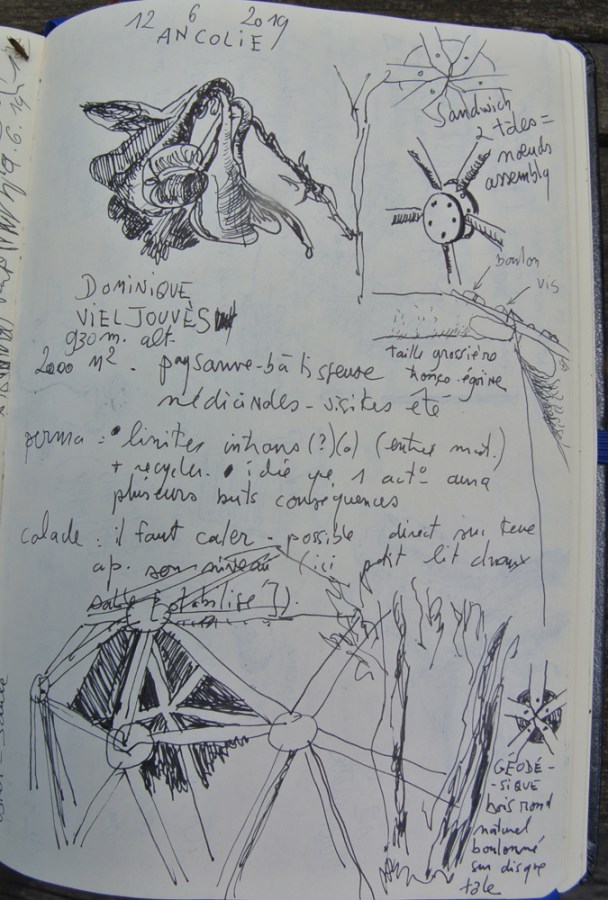 12 6 2019
ANCOLIE
Sandwich
2 tôles =
nœuds
assemblg
boulon
vis
taille grossière
tronço-égoïne
DOMINIQUE
VIELJOUVÈS
930 m. alt.
2000 m². paysanne-bâtisseuse
médicindes - visites été
perma : • limites intrans (?) (o) (entrée mat.)
+ recycler. • idée que 1 act° aura
plusieurs buts conséquences
calade : il faut caler - possible direct sur terre
ap. son niveau (ici petit lit chaux
sable stabilisé]).
GÉODÉ-
-SIQUE
bois rond
naturel
boulonné
sur disque
tôle